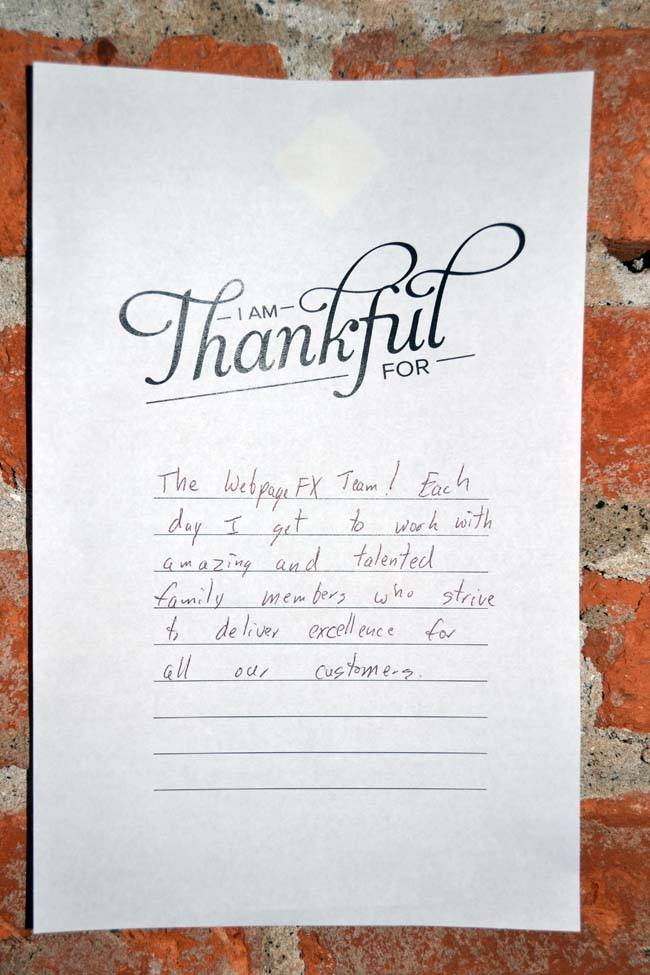 I AM
Thankful
FOR
The WebpageFX Team! Each
day I get to work with
amazing and talented
family members who strive
to deliver excellence for
all our customers.